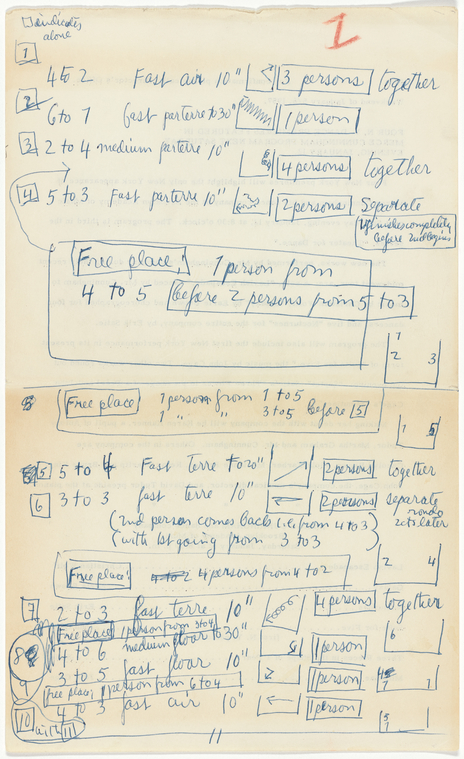 indicates
alone
1
1
4 to 2 Fast air 10" 3 persons together
2
6 to 7 fast parterre to 30" 1 person
3 2 to 4 medium parterre 10" 4 persons together
4 5 to 3 Fast parterre 10" 2 persons Separate
1st finishes completely
before 2nd begins
Free place! 1 person from
4 to 5 before 2 persons from 5 to 3
1
2 3
Free place 1 person from 1 to 5
1 " " 3 to 5 before 5
1 5
5 5 to 4 Fast terre to 20" 2 persons together
6 3 to 3 fast terre 10" 2 persons separate
rondo
2cts later
(2nd person comes back i.e. from 4 to 3)
(with 1st going from 3 to 3
2 4
Free place! 4 to 2 4 persons from 4 to 2
7 2 to 3 fast terre 10" 4 persons together
Free place 1 person from 3 to 4
6
8 4 to 6 medium floor to 30" 1 person
9 3 to 5 fast floor 10" 1 person
7 7
Free place, 1 person from 6 to 4
10 4 to 3 fast air 10" 1 person
with 11
5
7
11